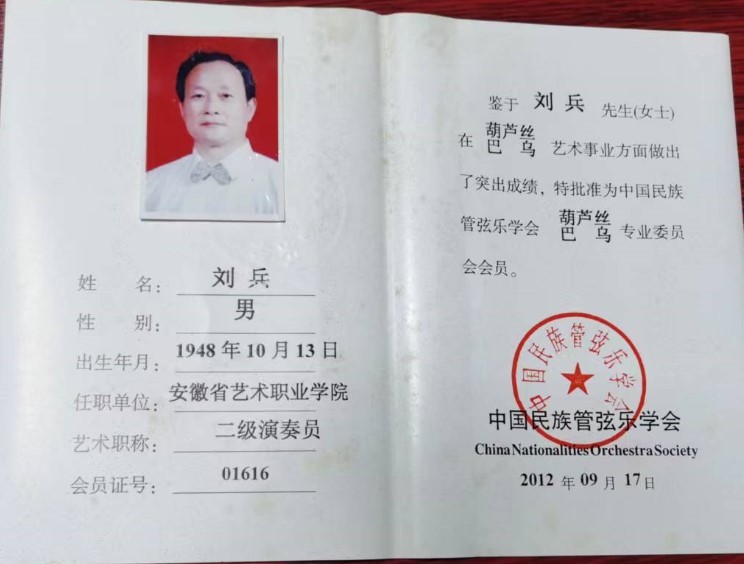 姓 名：刘兵
性 别：男
出生年月：1948年10月13日
任职单位：安徽省艺术职业学院
艺术职称：二级演奏员
会员证号：01616
鉴于 刘兵 先生(女士)
在 葫芦丝 巴乌 艺术事业方面做出
了突出成绩，特批准为中国民族
管弦乐学会 葫芦丝 巴乌 专业委员
会会员。
中国民族管弦乐学会
中国民族管弦乐学会
China Nationalities Orchestra Society
2012年09月17日